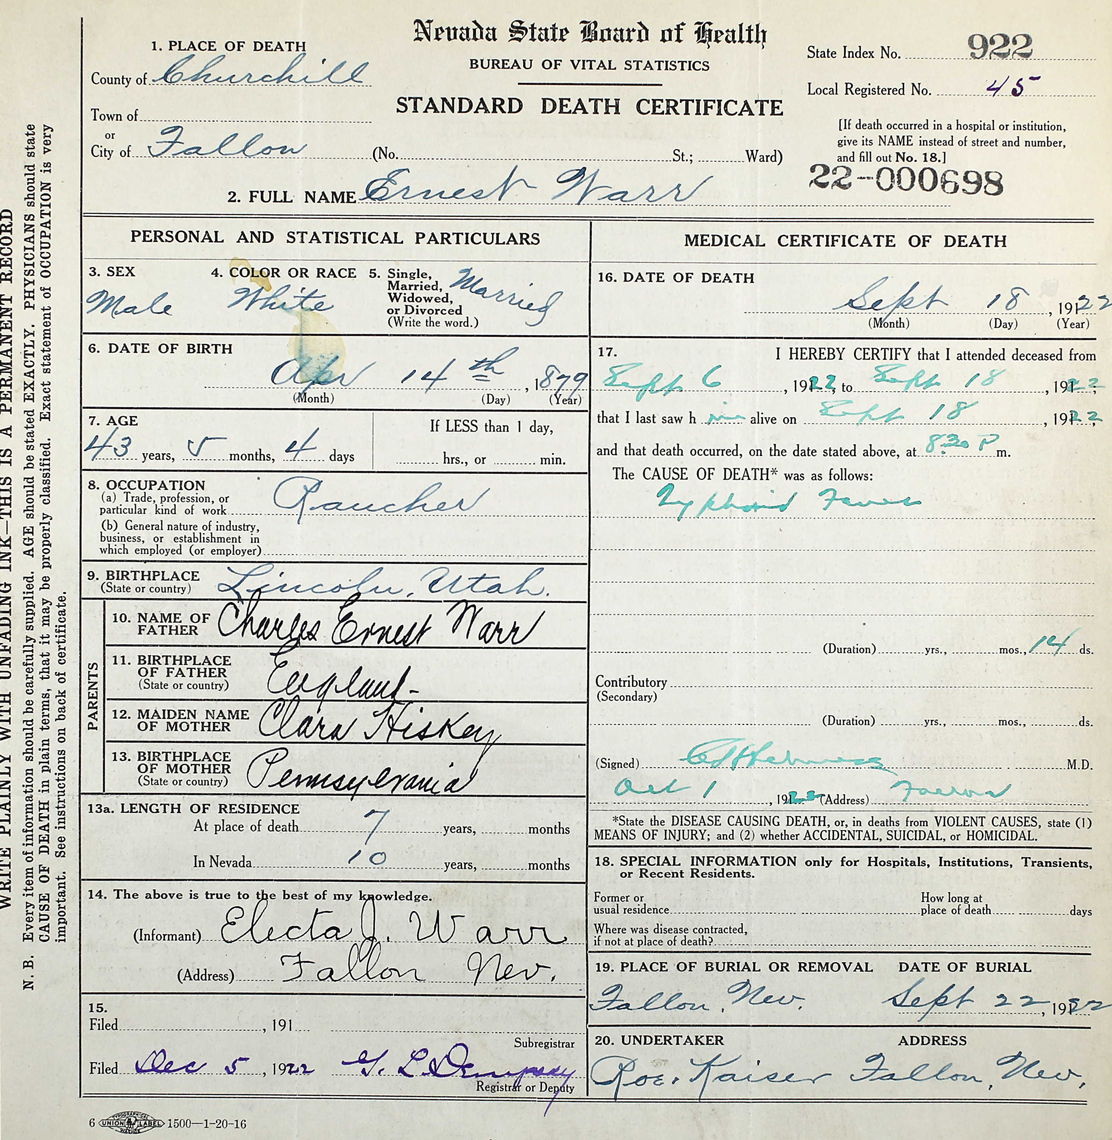 Nevada State Board of Health
BUREAU OF VITAL STATISTICS
STANDARD DEATH CERTIFICATE
State Index No. 922
Local Registered No. 45
[If death occurred in a hospital or institution,
give its NAME instead of street and number,
and fill out No. 18.]
22-000698
1. PLACE OF DEATH
County of Churchill
Town of
or
City of Fallon (No. St.; Ward)
2. FULL NAME Ernest Warr
PERSONAL AND STATISTICAL PARTICULARS
3. SEX
Male
4. COLOR OR RACE
White
5. Single,
Married,
Widowed,
or Divorced
(Write the word.)
Married
6. DATE OF BIRTH
Apr 14th, 1879
(Month) (Day) (Year)
7. AGE
43 years, 5 months, 4 days
If LESS than 1 day,
hrs., or min.
8. OCCUPATION
(a) Trade, profession, or
particular kind of work Rancher
(b) General nature of industry,
business, or establishment in
which employed (or employer)
9. BIRTHPLACE
(State or country) Lincoln, Utah.
PARENTS
10. NAME OF
FATHER Charles Ernest Warr
11. BIRTHPLACE
OF FATHER
(State or country) England-
12. MAIDEN NAME
OF MOTHER Clara Hiskey
13. BIRTHPLACE
OF MOTHER
(State or country) Pennsylvania
13a. LENGTH OF RESIDENCE
At place of death 7 years, months
In Nevada 10 years, months
14. The above is true to the best of my knowledge.
(Informant) Electa J. Warr
(Address) Fallon Nev.
15.
Filed , 191
Subregistrar
Filed Dec 5, 1922 G. L. Dempsey
Registrar or Deputy
MEDICAL CERTIFICATE OF DEATH
16. DATE OF DEATH
Sept 18, 1922
(Month) (Day) (Year)
17. I HEREBY CERTIFY that I attended deceased from
Sept 6, 1922, to Sept 18, 1922
that I last saw h im alive on Sept 18, 1922
and that death occurred, on the date stated above, at 8.30 P m.
The CAUSE OF DEATH* was as follows:
Typhoid Fever
(Duration) yrs., mos., 14 ds.
Contributory
(Secondary)
(Duration) yrs., mos., ds.
(Signed) M.D.
Oct 1, 1922 (Address) Fallon
*State the DISEASE CAUSING DEATH, or, in deaths from VIOLENT CAUSES, state (1)
MEANS OF INJURY; and (2) whether ACCIDENTAL, SUICIDAL, or HOMICIDAL.
18. SPECIAL INFORMATION only for Hospitals, Institutions, Transients,
or Recent Residents.
Former or
usual residence
How long at
place of death days
Where was disease contracted,
if not at place of death?
19. PLACE OF BURIAL OR REMOVAL DATE OF BURIAL
Fallon, Nev. Sept 22, 1922
20. UNDERTAKER ADDRESS
Roe. Kaiser Fallon, Nev.
6 TYPOGRAPHICAL UNION LABEL 1500—1-20-16
WRITE PLAINLY WITH UNFADING INK—THIS IS A PERMANENT RECORD
N. B. Every item of information should be carefully supplied. AGE should be stated EXACTLY. PHYSICIANS should state
CAUSE OF DEATH in plain terms, that it may be properly classified. Exact statement of OCCUPATION is very
important. See instructions on back of certificate.